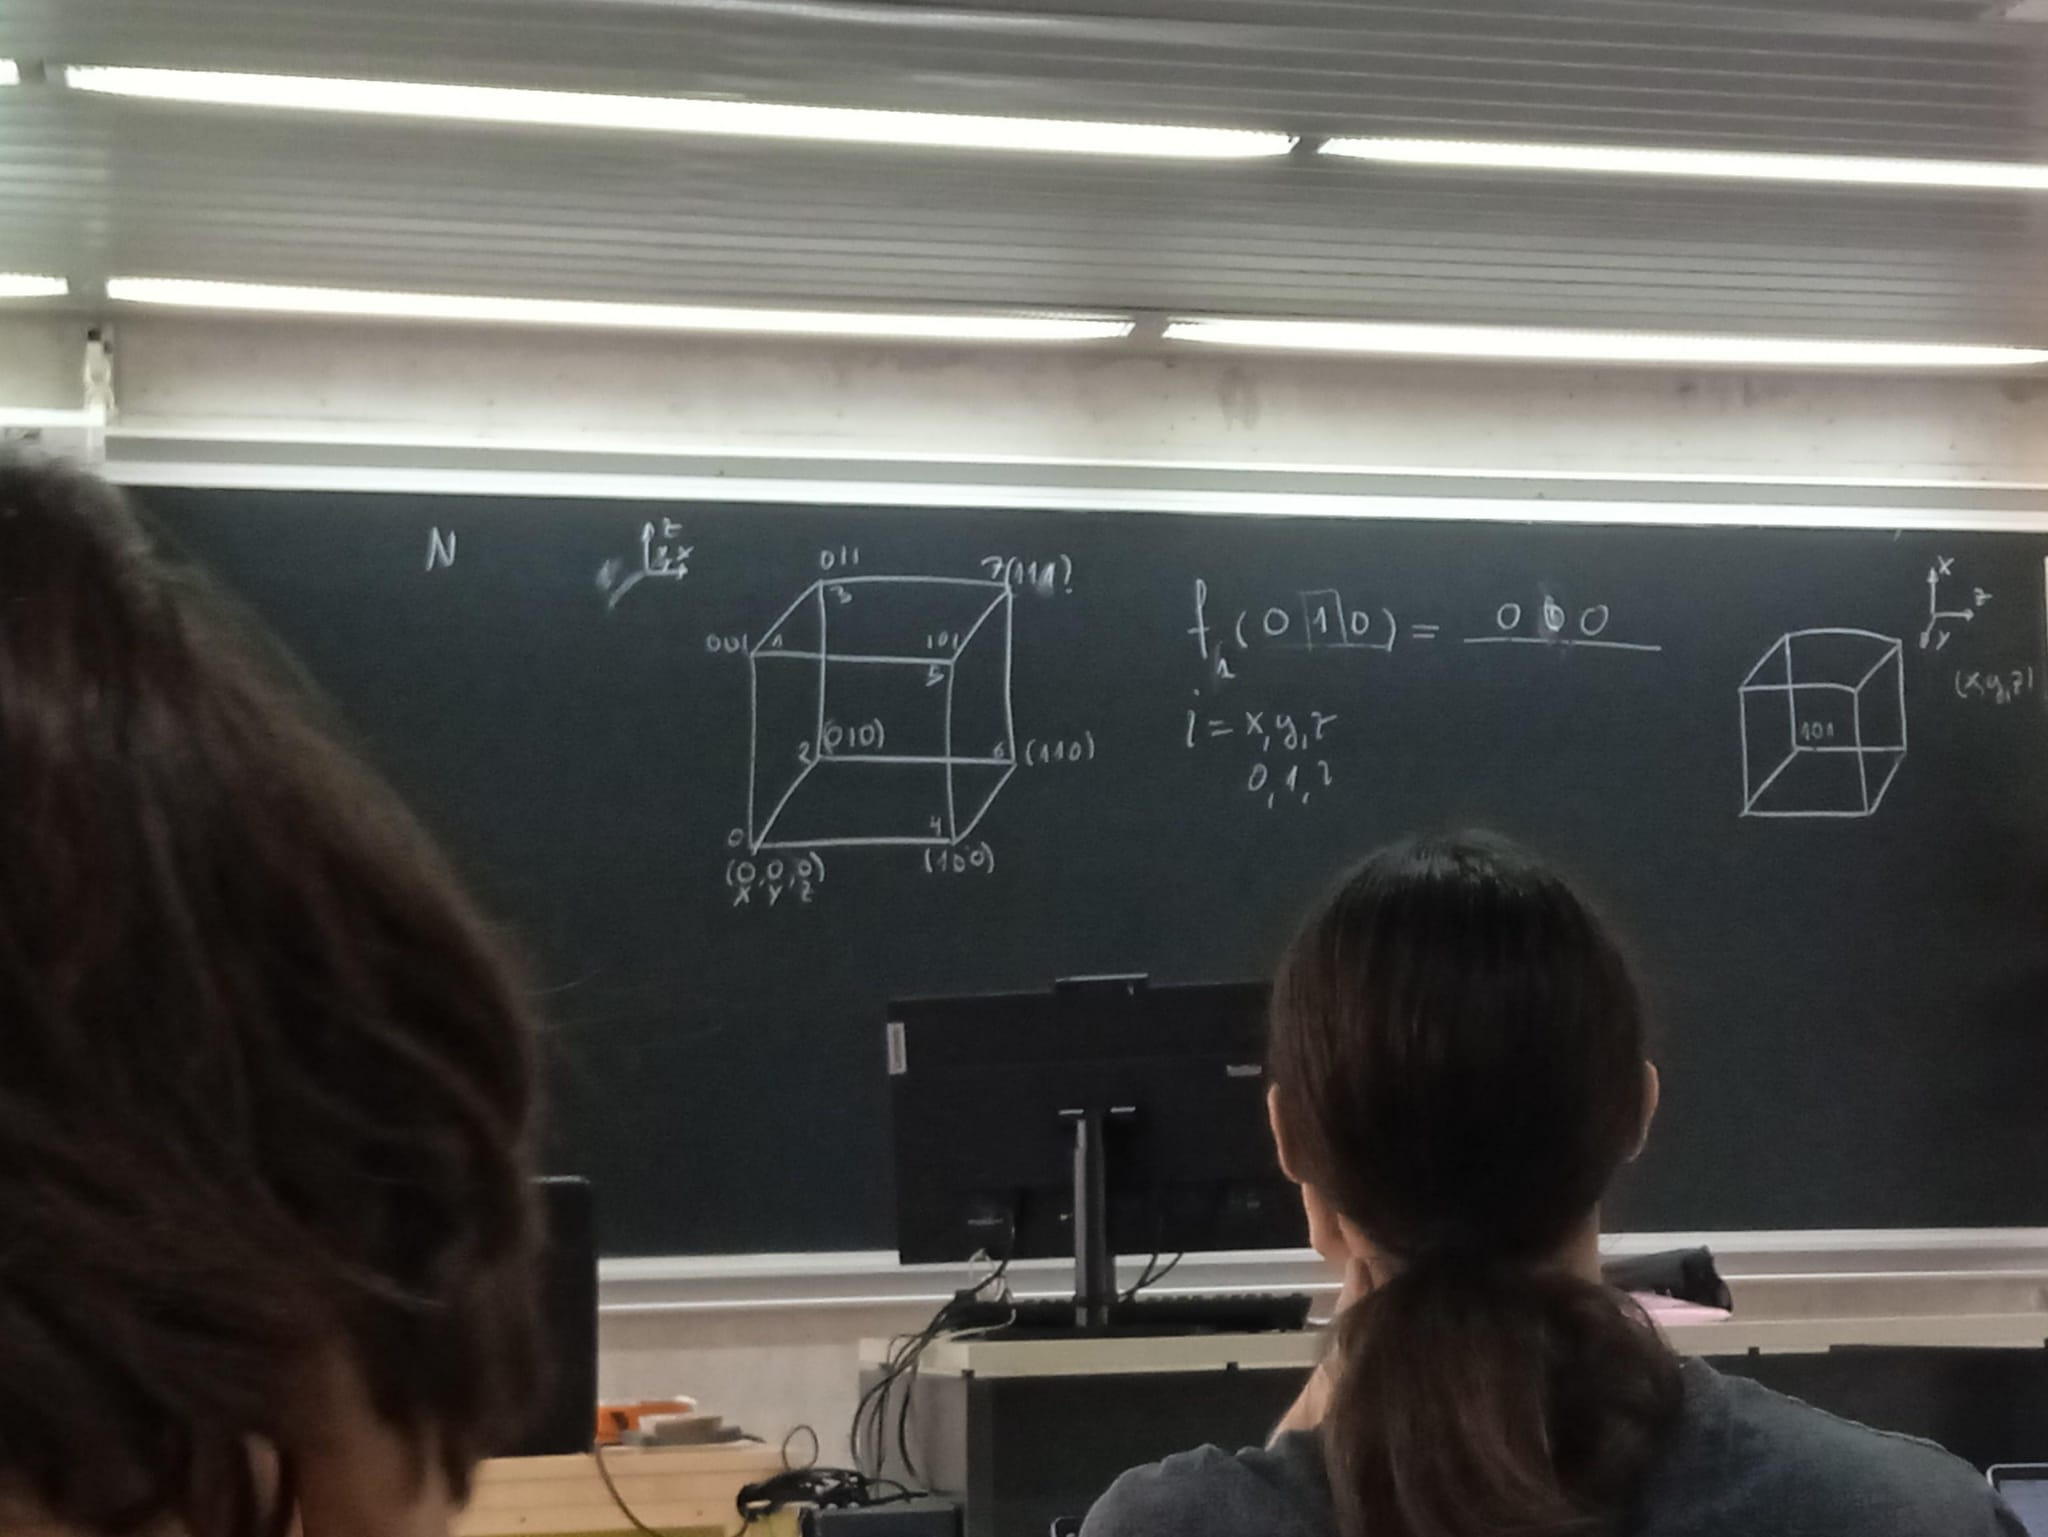 N
z
y x
011
7(111?
3
001 1
101
5
2 (010)
6 (110)
0
4
(0,0,0)
x y z
(100)
f (010) = 0 0 0
i = x,y,z
0,1,2
x
z
y
(x,y,z)
101